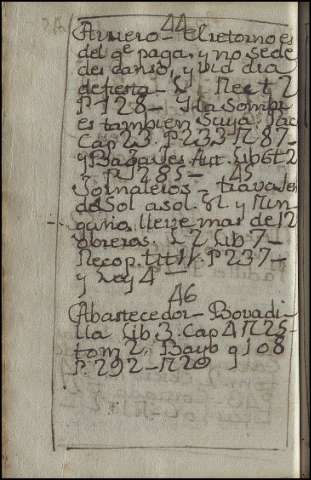 44
Arriero - el retorno es
del qe paga, y no se de
de fiesta -
P 128 - Y la Sombr
es tambien Suya Pac
Cap 23. P 233 N 87 -
y Bagajes Aut. Lib 6 t 2
P 285 - 45
Jornaleros - travajen
de Sol a sol. 8l y Nin-
guno lleve mas de 12
obreros. L 2 Lib 7 -
Recop. tit 11. P 237 -
y Ley 4 -
46
Abastecedor - Bovadi-
lla Lib 3. Cap 4 N 25 -
tom 2. Bayo q 108
P. 292 - N 20